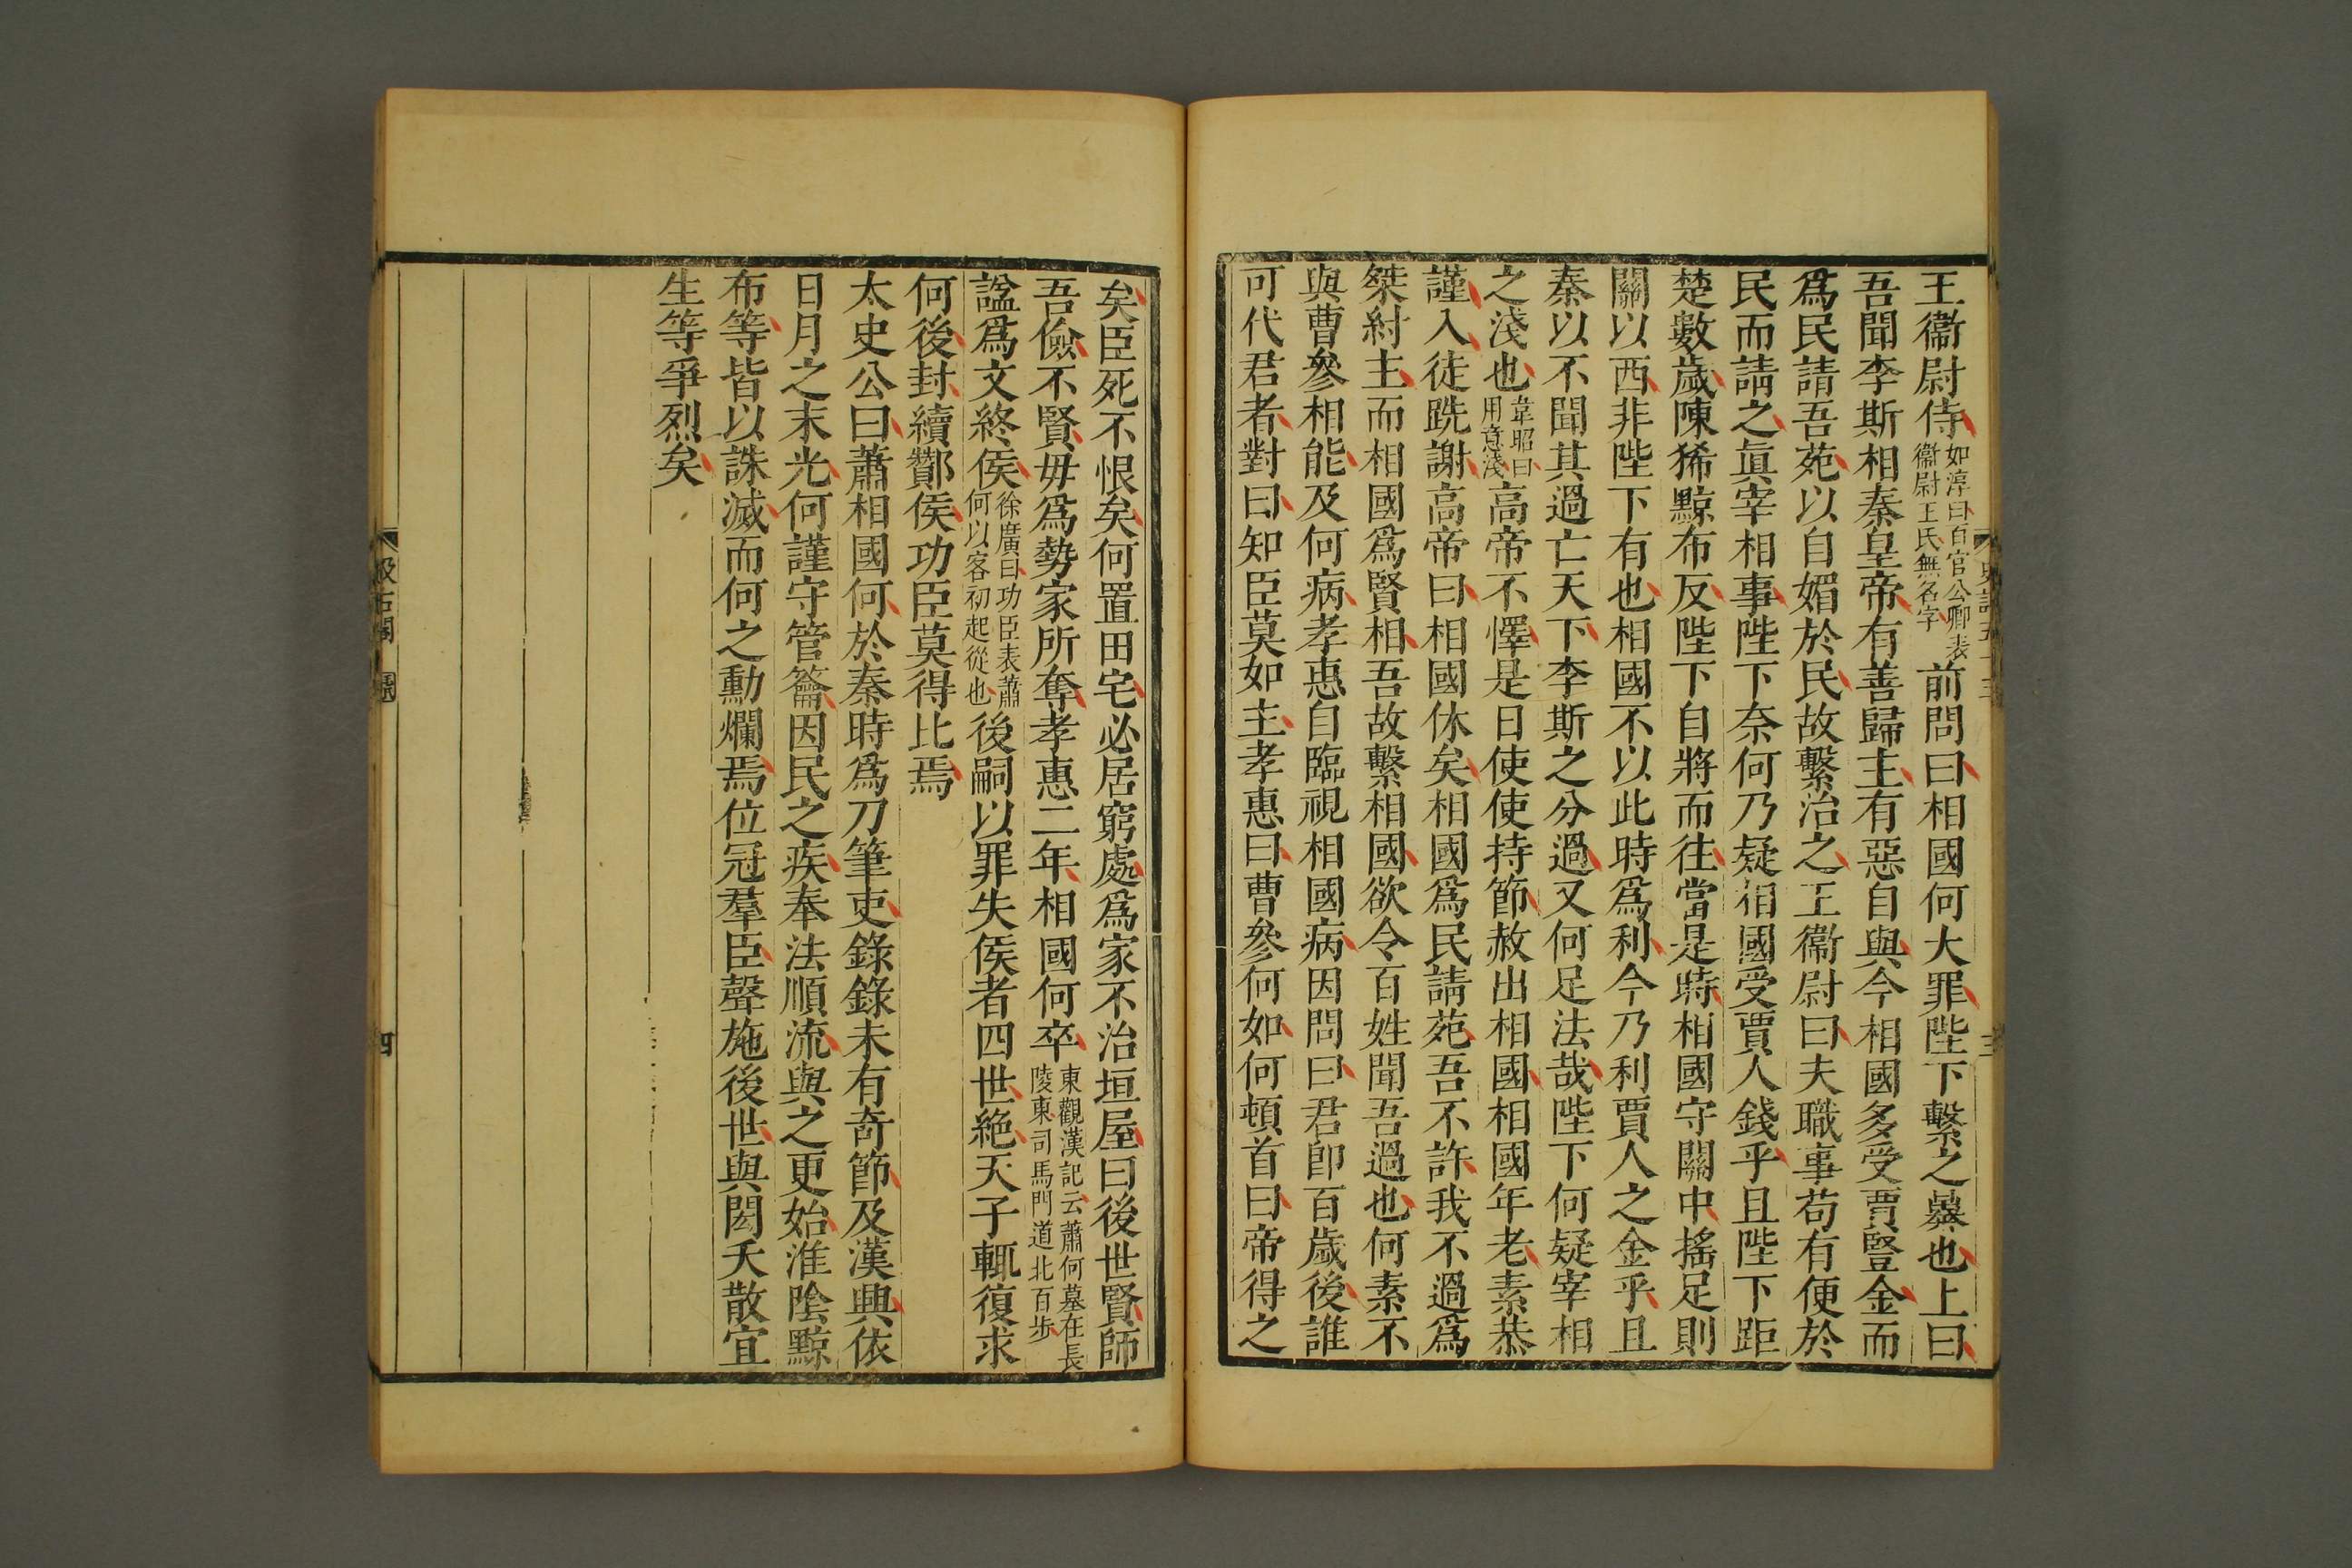 王衞尉侍如淳曰百官公卿表衞尉王氏無名字前問曰相國何大罪陛下繫之暴也上曰
吾聞李斯相秦皇帝有善歸主有惡自與今相國多受賈豎金而
爲民請吾苑以自媚於民故繫治之王衞尉曰夫職事苟有便於
民而請之眞宰相事陛下奈何乃疑相國受賈人錢乎且陛下距
楚數歲陳豨黥布反陛下自將而往當是時相國守關中搖足則
關以西非陛下有也相國不以此時爲利今乃利賈人之金乎且
秦以不聞其過亡天下李斯之分過又何足法哉陛下何疑宰相
之淺也韋昭曰用意淺高帝不懌是日使使持節赦出相國相國年老素恭
謹入徒跣謝高帝曰相國休矣相國爲民請苑吾不許我不過爲
桀紂主而相國爲賢相吾故繫相國欲令百姓聞吾過也何素不
與曹參相能及何病孝惠自臨視相國病因問曰君卽百歲後誰
可代君者對曰知臣莫如主孝惠曰曹參何如何頓首曰帝得之
矣臣死不恨矣何置田宅必居窮處爲家不治垣屋曰後世賢師
吾儉不賢毋爲勢家所奪孝惠二年相國何卒東觀漢記云蕭何墓在長陵東司馬門道北百步
諡爲文終侯徐廣曰功臣表蕭何以客初起從也後嗣以罪失侯者四世絕天子輒復求
何後封續酇侯功臣莫得比焉
太史公曰蕭相國何於秦時爲刀筆吏錄錄未有奇節及漢興依
日月之末光何謹守管籥因民之疾奉法順流與之更始淮陰黥
布等皆以誅滅而何之勳爛焉位冠羣臣聲施後世與閎夭散宜
生等爭烈矣
四